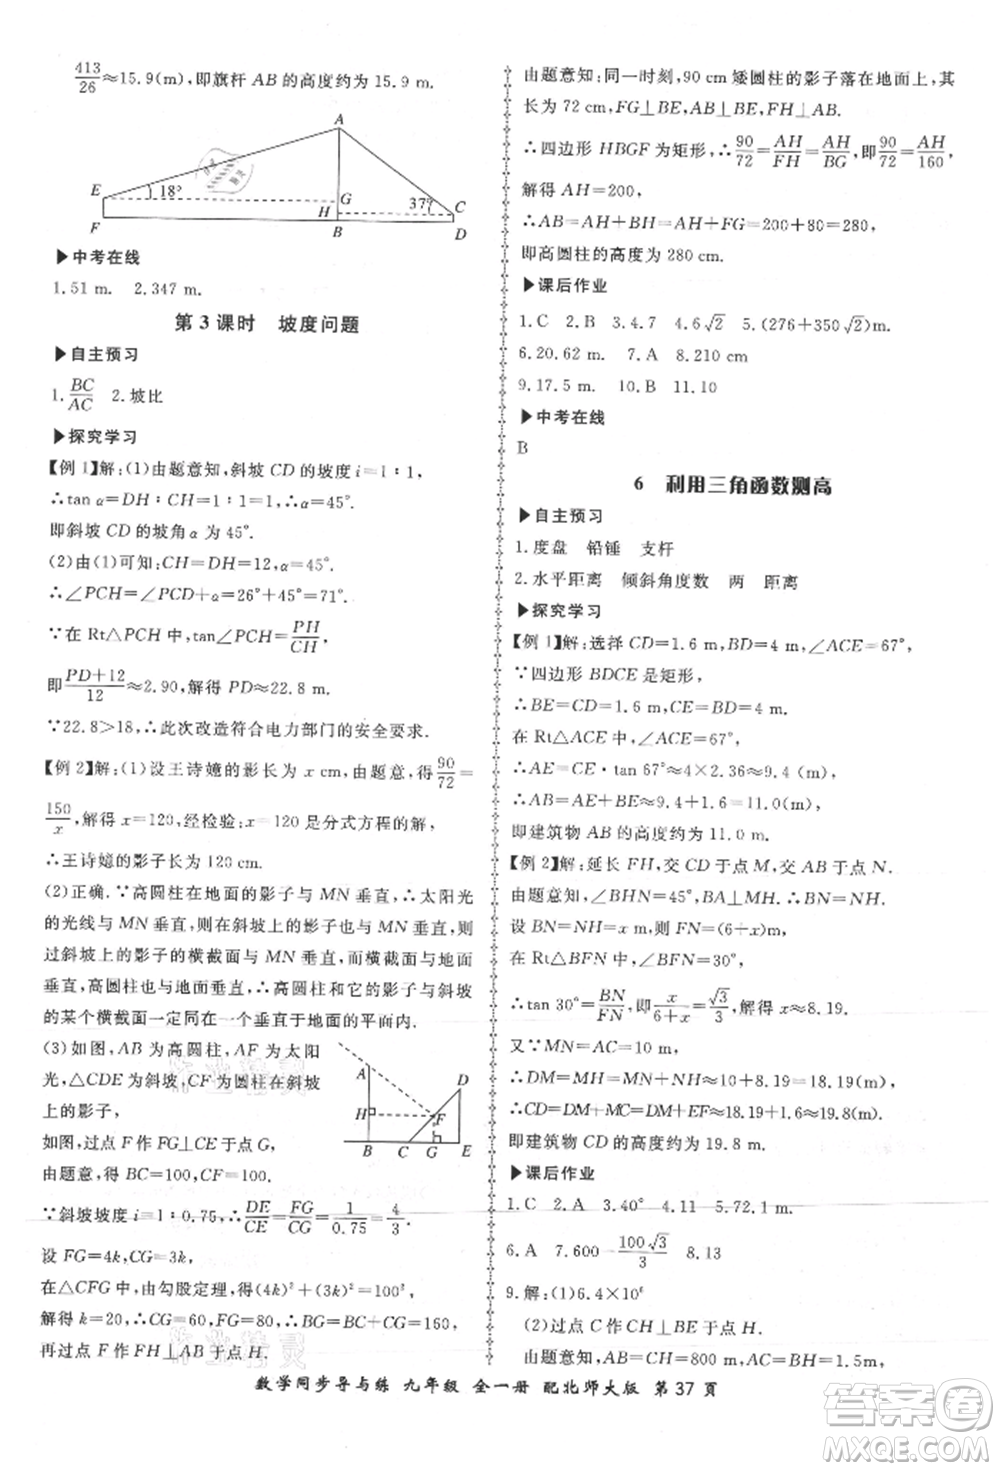 413/26≈15.9(m),即旗杆 AB 的高度约为 15.9 m.
A
E
18°
G
37°
C
F
H
B
D
▶中考在线
1.51 m. 2.347 m.
第 3 课时 坡度问题
▶自主预习
1.BC/AC 2.坡比
▶探究学习
【例 1】解:(1)由题意知,斜坡 CD 的坡度 i=1∶1,
∴tan α=DH∶CH=1∶1=1,α=45°.
即斜坡 CD 的坡角 α 为 45°.
(2)由(1)可知:CH=DH=12,α=45°.
∴∠PCH=∠PCD+α=26°+45°=71°.
∵在 Rt△PCH 中,tan∠PCH=PH/CH,
即(PD+12)/12≈2.90,解得 PD≈22.8 m.
∵22.8>18,∴此次改造符合电力部门的安全要求.
【例 2】解:(1)设王诗嬑的影长为 x cm,由题意,得90/72=
150/x,解得 x=120,经检验:x=120 是分式方程的解,
∴王诗嬑的影子长为 120 cm.
(2)正确.∵高圆柱在地面的影子与 MN 垂直,∴太阳光
的光线与 MN 垂直,则在斜坡上的影子也与 MN 垂直,则
过斜坡上的影子的横截面与 MN 垂直,而横截面与地面
垂直,高圆柱也与地面垂直,∴高圆柱和它的影子与斜坡
的某个横截面一定同在一个垂直于地面的平面内.
(3)如图,AB 为高圆柱,AF 为太阳
光,△CDE 为斜坡,CF 为圆柱在斜坡
上的影子,
如图,过点 F 作 FG⊥CE 于点 G,
由题意,得 BC=100,CF=100,
A
D
H
F
B
C
G
E
∵斜坡坡度 i=1∶0.75,∴DE/CE=FG/CG=1/0.75=4/3,
设 FG=4k,CG=3k,
在△CFG 中,由勾股定理,得(4k)²+(3k)²=100²,
解得 k=20,∴CG=60,FG=80,∴BG=BC+CG=160,
再过点 F 作 FH⊥AB 于点 H.
由题意知:同一时刻,90 cm 矮圆柱的影子落在地面上,其
长为 72 cm,FG⊥BE,AB⊥BE,FH⊥AB.
∴四边形 HBGF 为矩形,∴90/72=AH/FH=AH/BG,即90/72=AH/160,
解得 AH=200,
∴AB=AH+BH=AH+FG=200+80=280,
即高圆柱的高度为 280 cm.
▶课后作业
1.C 2.B 3.4.7 4.6√2 5.(276+350√2)m.
6.20.62 m. 7.A 8.210 cm
9.17.5 m. 10.B 11.10
▶中考在线
B
6 利用三角函数测高
▶自主预习
1.度盘 铅锤 支杆
2.水平距离 倾斜角度数 两 距离
▶探究学习
【例 1】解:选择 CD=1.6 m,BD=4 m,∠ACE=67°,
∵四边形 BDCE 是矩形,
∴BE=CD=1.6 m,CE=BD=4 m.
在 Rt△ACE 中,∠ACE=67°,
∴AE=CE·tan 67°≈4×2.36≈9.4 (m),
∴AB=AE+BE≈9.4+1.6=11.0(m),
即建筑物 AB 的高度约为 11.0 m.
【例 2】解:延长 FH,交 CD 于点 M,交 AB 于点 N.
由题意知,∠BHN=45°,BA⊥MH,则 BN=NH.
设 BN=NH=x m,则 FN=(6+x)m.
在 Rt△BFN 中,∠BFN=30°,
∴tan 30°=BN/FN,即x/(6+x)=√3/3,解得 x≈8.19.
又∵MN=AC=10 m,
∴DM=MH=MN+NH≈10+8.19=18.19(m),
∴CD=DM+MC=DM+EF≈18.19+1.6≈19.8(m).
即建筑物 CD 的高度约为 19.8 m.
▶课后作业
1.C 2.A 3.40° 4.11 5.72.1 m.
6.A 7.600−100√3/3 8.13
9.解:(1)6.4×10⁶
(2)过点 C 作 CH⊥BE 于点 H.
由题意知,AB=CH=800 m,CB=AH=1 500 m.
数学同步导与练 九年级 全一册 配北师大版 第 37 页
答案圈
MXQE.COM